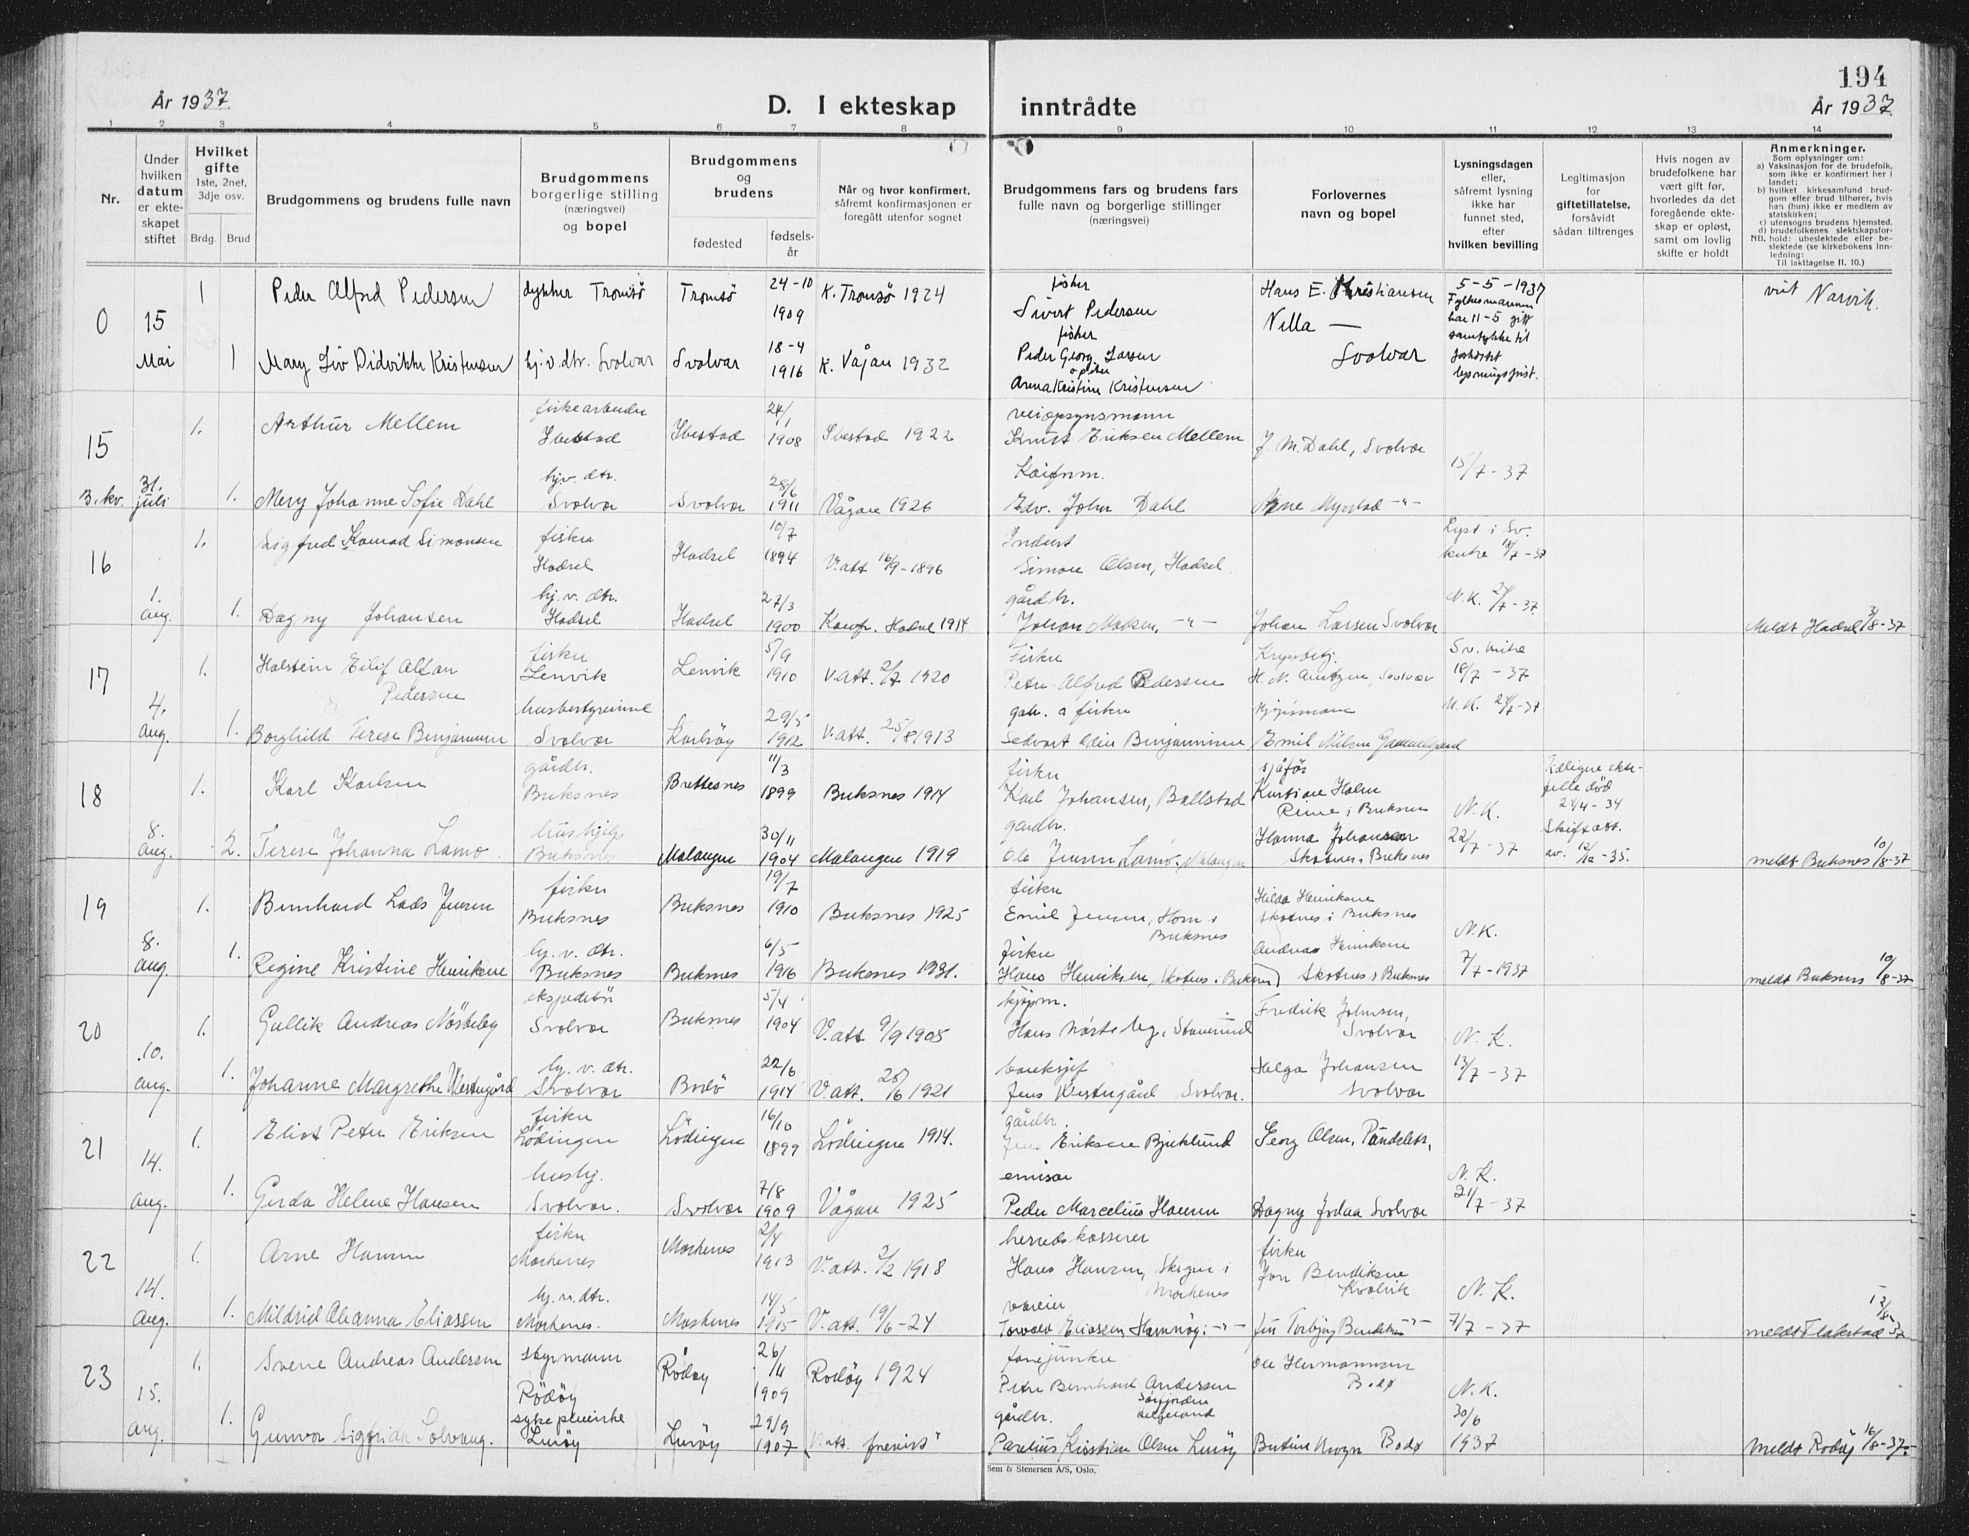 194
År 1937.
D. I ekteskap inntrådte
År 1937
1 2 3 4 5 6 7 8 9 10 11 12 13 14
Nr.
Under hvilken datum er ekteskapet stiftet
Hvilket gifte 1ste, 2net, 3dje osv.
Brdg. Brud
Brudgommens og brudens fulle navn
Brudgommens borgerlige stilling (næringsvei) og bopel
Brudgommens og brudens
fødested
fødselsår
Når og hvor konfirmert, såfremt konfirmasjonen er foregått utenfor sognet
Brudgommens fars og brudens fars fulle navn og borgerlige stillinger (næringsvei)
Forlovernes navn og bopel
Lysningsdagen eller, såfremt lysning ikke har funnet sted, efter hvilken bevilling
Legitimasjon for giftetillatelse, forsåvidt sådan tiltrenges
Hvis nogen av brudefolkene har vært gift før, hvorledes da det foregående ekteskap er opløst, samt om lovlig skifte er holdt
Anmerkninger.
Som oplysninger om:
a) Vaksinasjon for de brudefolk, som ikke er konfirmert her i landet;
b) hvilket kirkesamfund brudgom eller brud tilhører, hvis han (hun) ikke er medlem av statskirken;
c) utensogns brudens hjemsted.
d) brudefolkenes slektskapsforhold: ubeslektede eller beslektede (se kirkebokens innledning:
NB.
Til iakttagelse II. 10.)
0 15 Mai
1 Peder Alfred Pedersen dykker Tromsø Tromsø 24-10 1909 K. Tromsø 1924
fisker Sivert Pedersen Hans E. Kristiansen 5-5-1937 Fylkesmannen har 11-5 gitt samtykke til forkortet lysningsfrist.
Narvik.
1 Mary Liv Didrikke Kristensen hj.v.dtr. Svolvær Svolvær 18-4 1916 K. Vågan 1932
fisker Peder Georg Larsen Anna Kristine Kristensen
Svolvær
15 3. kv. 31. juli
1. Arthur Mellem fiskearbeider Ibestad Ibestad 24/1 1908 Ibestad 1922
veiopsynsmann Knut Eriksen Mellem J. M. Dahl, Svolvær 15/7-37
1. Mery Johanne Sofie Dahl hjv. dtr. Svolvær Svolvær 28/6 1911 Vågan 1926
Edv. Johan Dahl Arne Myrstad -"-
16 1. aug.
1. Sigfred Konrad Simonsen fisker Hadsel Hadsel 10/7 1894 V.att 16/9-1896
Simon Olsen, Hadsel. Lyst i Sv. kirke 18/7-37
1. Dagny Johansen hj. v. dtr. Hadsel Hadsel 27/3 1900 Konf. Hadsel 1914.
gårdbr. Johan Madsen, -"- Johan Larsen Svolvær N.K. 24/7-37
Meldt Hadsel 3/8-37
17 4. aug.
1. Halstein Eilif Altan Pedersen fisker Lenvik Lenvik 5/9 1910 V.att. 2/7 1920
fisker Peter Alfred Pedersen H. N. Arntzen, Svolvær Sv. kirke 18/7-37
1. Borghild Terese Benjaminsen husbestyrerinne Svolvær Karlsøy 29/5 1912 V.att. 25/8 1913
gbr. & fisker Sedvart Odin Benjaminsen Emil Nilsen Gammelgård N.K. 24/7-37
18 8. aug.
1. Karl Karlsen gårdbr. Buksnes Brettesnes 11/3 1899 Buksnes 1914
fisker Karl Johansen, Ballstad sjåfør Kristian Holm Reine i Buksnes N.K. 22/7-37
Tidligere ektefelle død 21/4-34
Skifteatt. av. 12/12-35.
2. Terese Johanna Lamo hushjelp Buksnes Malangen 30/11 1904 Malangen 1919
gårdbr. Ole Jensen Lamo, Malangen Hanna Johansen Skotnes i Buksnes
meldt Buksnes 10/8-37
19 8. aug.
1. Bernhard Lads Jensen fisker Buksnes Buksnes 19/7 1910 Buksnes 1925
fisker Emil Jensen, Horn i Buksnes Hilda Henriksen Skotnes i Buksnes N.K. 7/7-1937
1. Regine Kristine Henriksen hj. v. dtr. Buksnes Buksnes 6/5 1916 Buksnes 1931.
fisker Hans Henriksen, Skotnes i Buksnes Andreas Henriksen Skotnes i Buksnes
meldt Buksnes 10/8-37
20 10. aug.
1. Gullik Andreas Nøsteby ekspeditør Svolvær Buksnes 5/4 1904 V.att 9/9 1905
kjøpm. Hans Nøsteby, Stamsund Fredrik Johnsen, Svolvær N.K. 13/7-37
1. Johanne Margrethe Westergård hj. v. dtr. Svolvær Bodø 22/6 1914 V.att. 25/6 1921
banksjef Jens Westergård Svolvær. Helga Johansen Svolvær
21 14. aug.
1. Eliot Peter Eriksen fisker Lødingen Lødingen 16/10 1899 Lødingen 1914.
gårdbr. Jens Eriksen Bjerklund Georg Olsen, N.K. 21/7-37
1. Gerda Helene Hansen hushj. Svolvær. Svolvær 7/8 1909 Vågan 1925
emisær Peder Marcelius Hansen Dagny Jodaa Svolvær
22 14. aug.
1. Arne Hansen fisker Moskenes Moskenes 2/4 1913 V.att. 2/2 1918
herredskasserer Hans Hansen, i Moskenes fisker Jon Bendiksen Kvalvik N.K. 7/7-37
1. Mildrid Oleanna Eliassen hj. v. dtr. Moskenes. Moskenes 14/5 1915 V.att. 19/6-24
Torvald Eliassen, Hamnøy i -"- fru Torbjørg Bendiksen -"-
meldt Flakstad 12/8 37
23 15. aug.
1. Svenn Andreas Andersen styrmann Rødøy Rødøy 26/11 1909 Rødøy 1924
fanejunker Petter Bernhard Andersen Sørfjorden Helgeland Ole Hermannsen Bodø N.K. 30/6 1937
1. Gunvor Sigfrida Solvang. sykepleierske Lurøy Lurøy 29/9 1907 V.att. forevist"
gårdbr. Parelius Kristian Olsen Lurøy Bodø
Meldt Rødøy 16/8-37.
Sem & Stenersen A/S, Oslo.